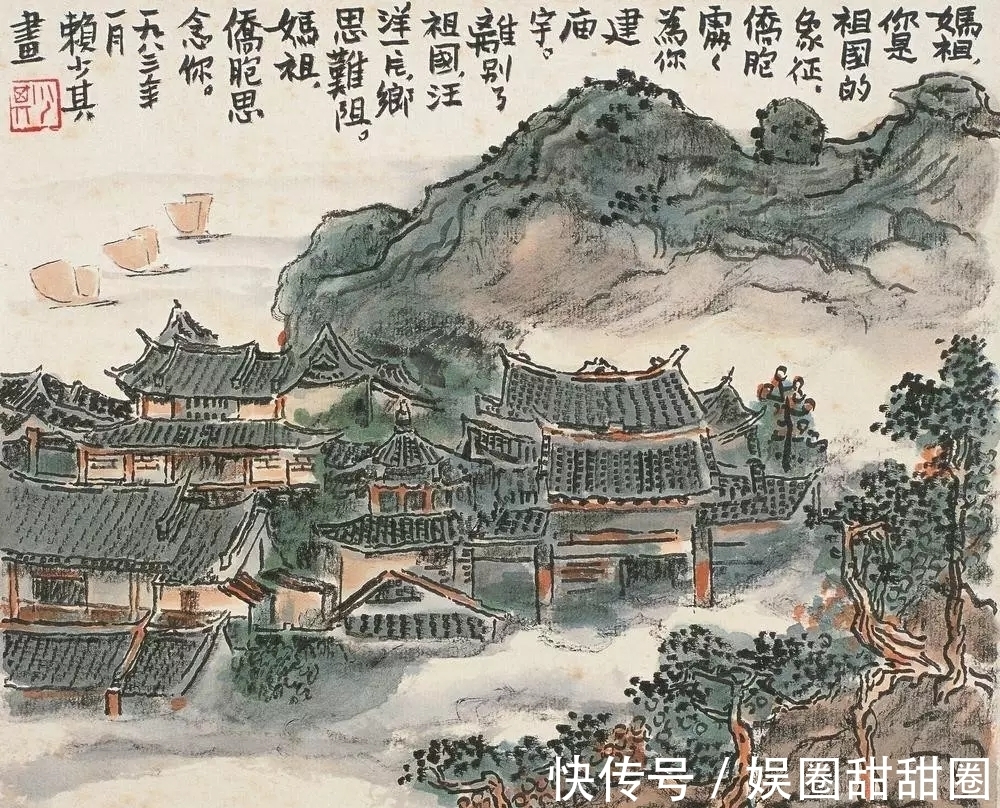 媽祖，
你是
祖國的
象征，
僑胞
處々
為你
建
庙
宇。
離别了
祖國，汪
洋一片，鄉
思難阻。
媽祖，
僑胞思
念你。
一九八三年
一月
賴少其
畫
快传号 / 娱圈甜甜圈